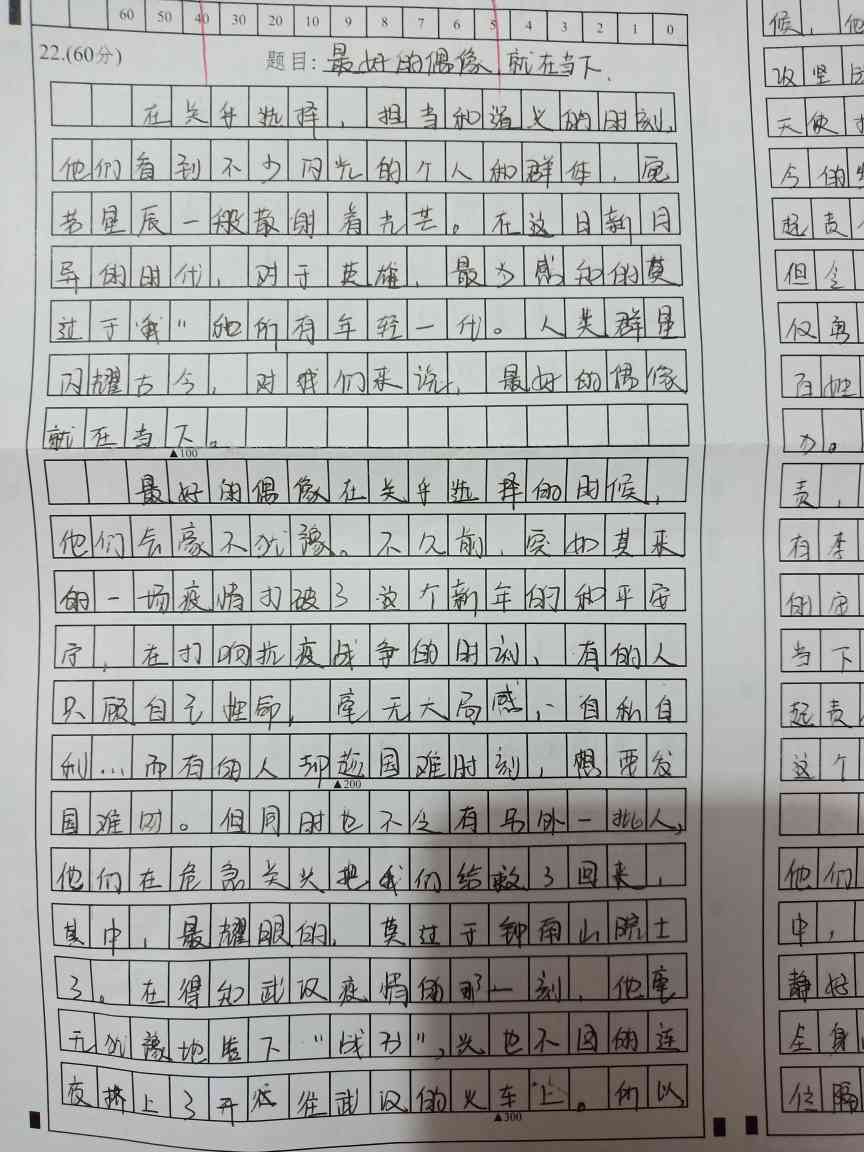 60 50 40 30 20 10 9 8 7 6 5 4 3 2 1 0
22.(60分) 题目: 最好的偶像,就在当下.
在关乎抉择,担当和道义的时刻,
他们看到不少闪光的个人和群体,宛
若星辰一般散射着光芒。在这日新月
异的时代,对于英雄,最为感知的莫
过于"我"和所有年轻一代。人类群星
闪耀古今,对我们来说,最好的偶像
就在当下。
▲100
最好的偶像在关乎选择的时候,
他们丝毫不犹豫。不久前,突如其来
的一场疫情打破了这个新年的和平安
宁,在打响抗疫战争的时刻,有的人
只顾自己性命,毫无大局感,自私自
利…而有的人却趁国难时刻,想要发
▲200
国难财。但同时也不乏有另外一批人,
他们在危急关头把我们给救了回来,
其中,最耀眼的,莫过于钟南山院士
了。在得知武汉疫情的那一刻,他毫
无犹豫地告下"战书",头也不回的连
夜挤上了开往武汉的火车上。所以
▲300
候,他
攻坚战
天使
今的
起责
但令
仅勇
百姓
力。
责,
有李
的
当下
起责
这个
他们
中,
静好
全身
位隔